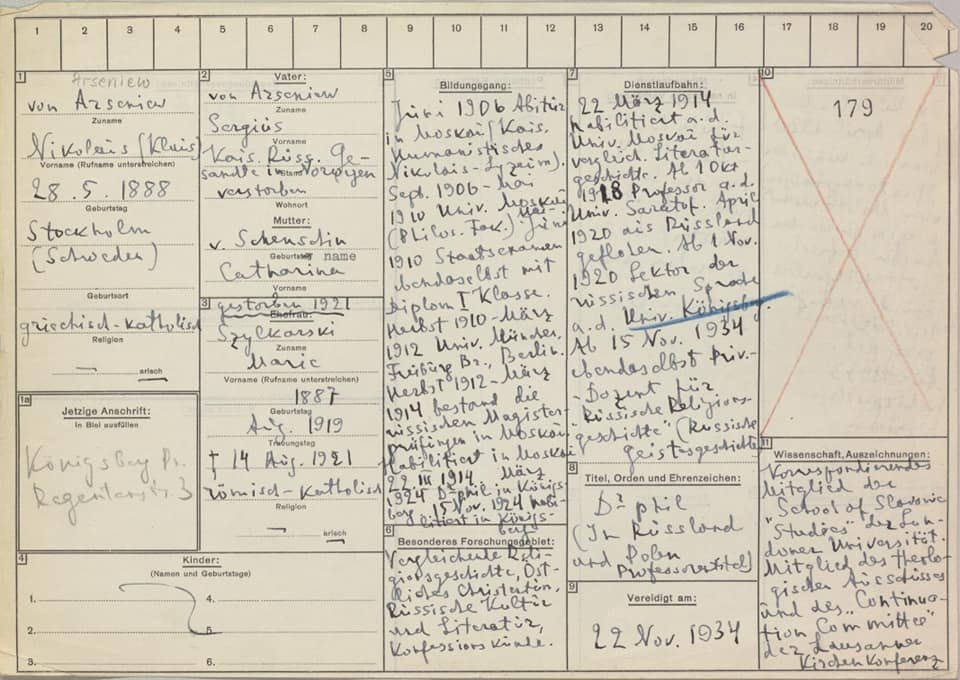 1 2 3 4 5 6 7 8 9 10 11 12 13 14 15 16 17 18 19 20
1
Arseniew
von Arseniew
Zuname
Nikolaus (Klaus)
Vorname (Rufname unterstreichen)
28. 5. 1888
Geburtstag
Stockholm
(Schweden)
Geburtsort
griechisch-katholisch
Religion
— arisch
1a
Jetzige Anschrift:
in Blei ausfüllen
Königsberg Pr.
Regentenstr. 3
2
Vater:
von Arseniew
Zuname
Sergius
Vorname
Kais. Russ. Ge-
Stand
sandte in Norwegen
verstorben
Wohnort
Mutter:
v. Schenschin
Geburtsname
Catharina
Vorname
gestorben 1921
3
Ehefrau:
Szylkarski
Zuname
Marie
Vorname (Rufname unterstreichen)
1887
Geburtstag
Aug. 1919
Trauungstag
† 14 Aug. 1921
römisch-katholisch
Religion
— arisch
4
Kinder:
(Namen und Geburtstage)
1. 4.
2. 5.
3. 6.
5
Bildungsgang:
Juni 1906 Abitur
in Moskau (Kais.
Humanistisches
Nikolais-Lyzeim).
Sept. 1906 - Mai
1910 Univ. Moskau
(Philos. Fak.) Mai-Juni
1910 Staatsexamen
ebendaselbst mit
Diplom I Klasse.
Herbst 1910 - März
1912 Univ. München,
Freiburg Br., Berlin.
Herbst 1912 - März
1914 bestand die
russischen Magister-
prüfungen in Moskau
Habilitiert in Moskau
22 III 1914. März
1924 Dr phil in Königs-
berg 15 Nov. 1924 habi-
litiert in Königs-
berg
6
Besonderes Forschungsgebiet:
Vergleichende Reli-
gionsgeschichte, Öst-
liches Christentum,
Russische Kultur
und Literatur,
Konfessionskunde.
7
Dienstlaufbahn:
22 März 1914
habilitiert a. d.
Univ. Moskau für
vergleich. Literatur-
geschichte. Ab 1 Okt
1918 Professor a. d.
Univ. Saratof. April
1920 aus Russland
geflohen. Ab 1 Nov.
1920 Lektor der
russischen Sprache
a. d. Univ. Königsbg.
Ab 15 Nov. 1934
ebendaselbst Priv.-
Dozent für
"Russische Religions-
geschichte" (Russische
Geistesgeschichte)
8
Titel, Orden und Ehrenzeichen:
Dr phil
(In Russland
und Polen
Professorentitel)
9
Vereidigt am:
22 Nov. 1934
10
179
11
Wissenschaft, Auszeichnungen:
Korrespondierendes
Mitglied der
"School of Slavonic
Studies" der Lon-
doner Universität.
Mitglied des theolo-
gischen Ausschusses
und des "Continua-
tion Committee"
der Lausanner
Kirchenkonferenz